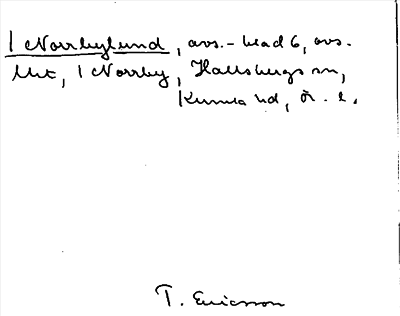 1 Norrbylund, avs.-blad 6, avs.
litt, 1 Norrby, Hallsbergs sn,
Kumla hd, Ör. l.
T. Ericsson